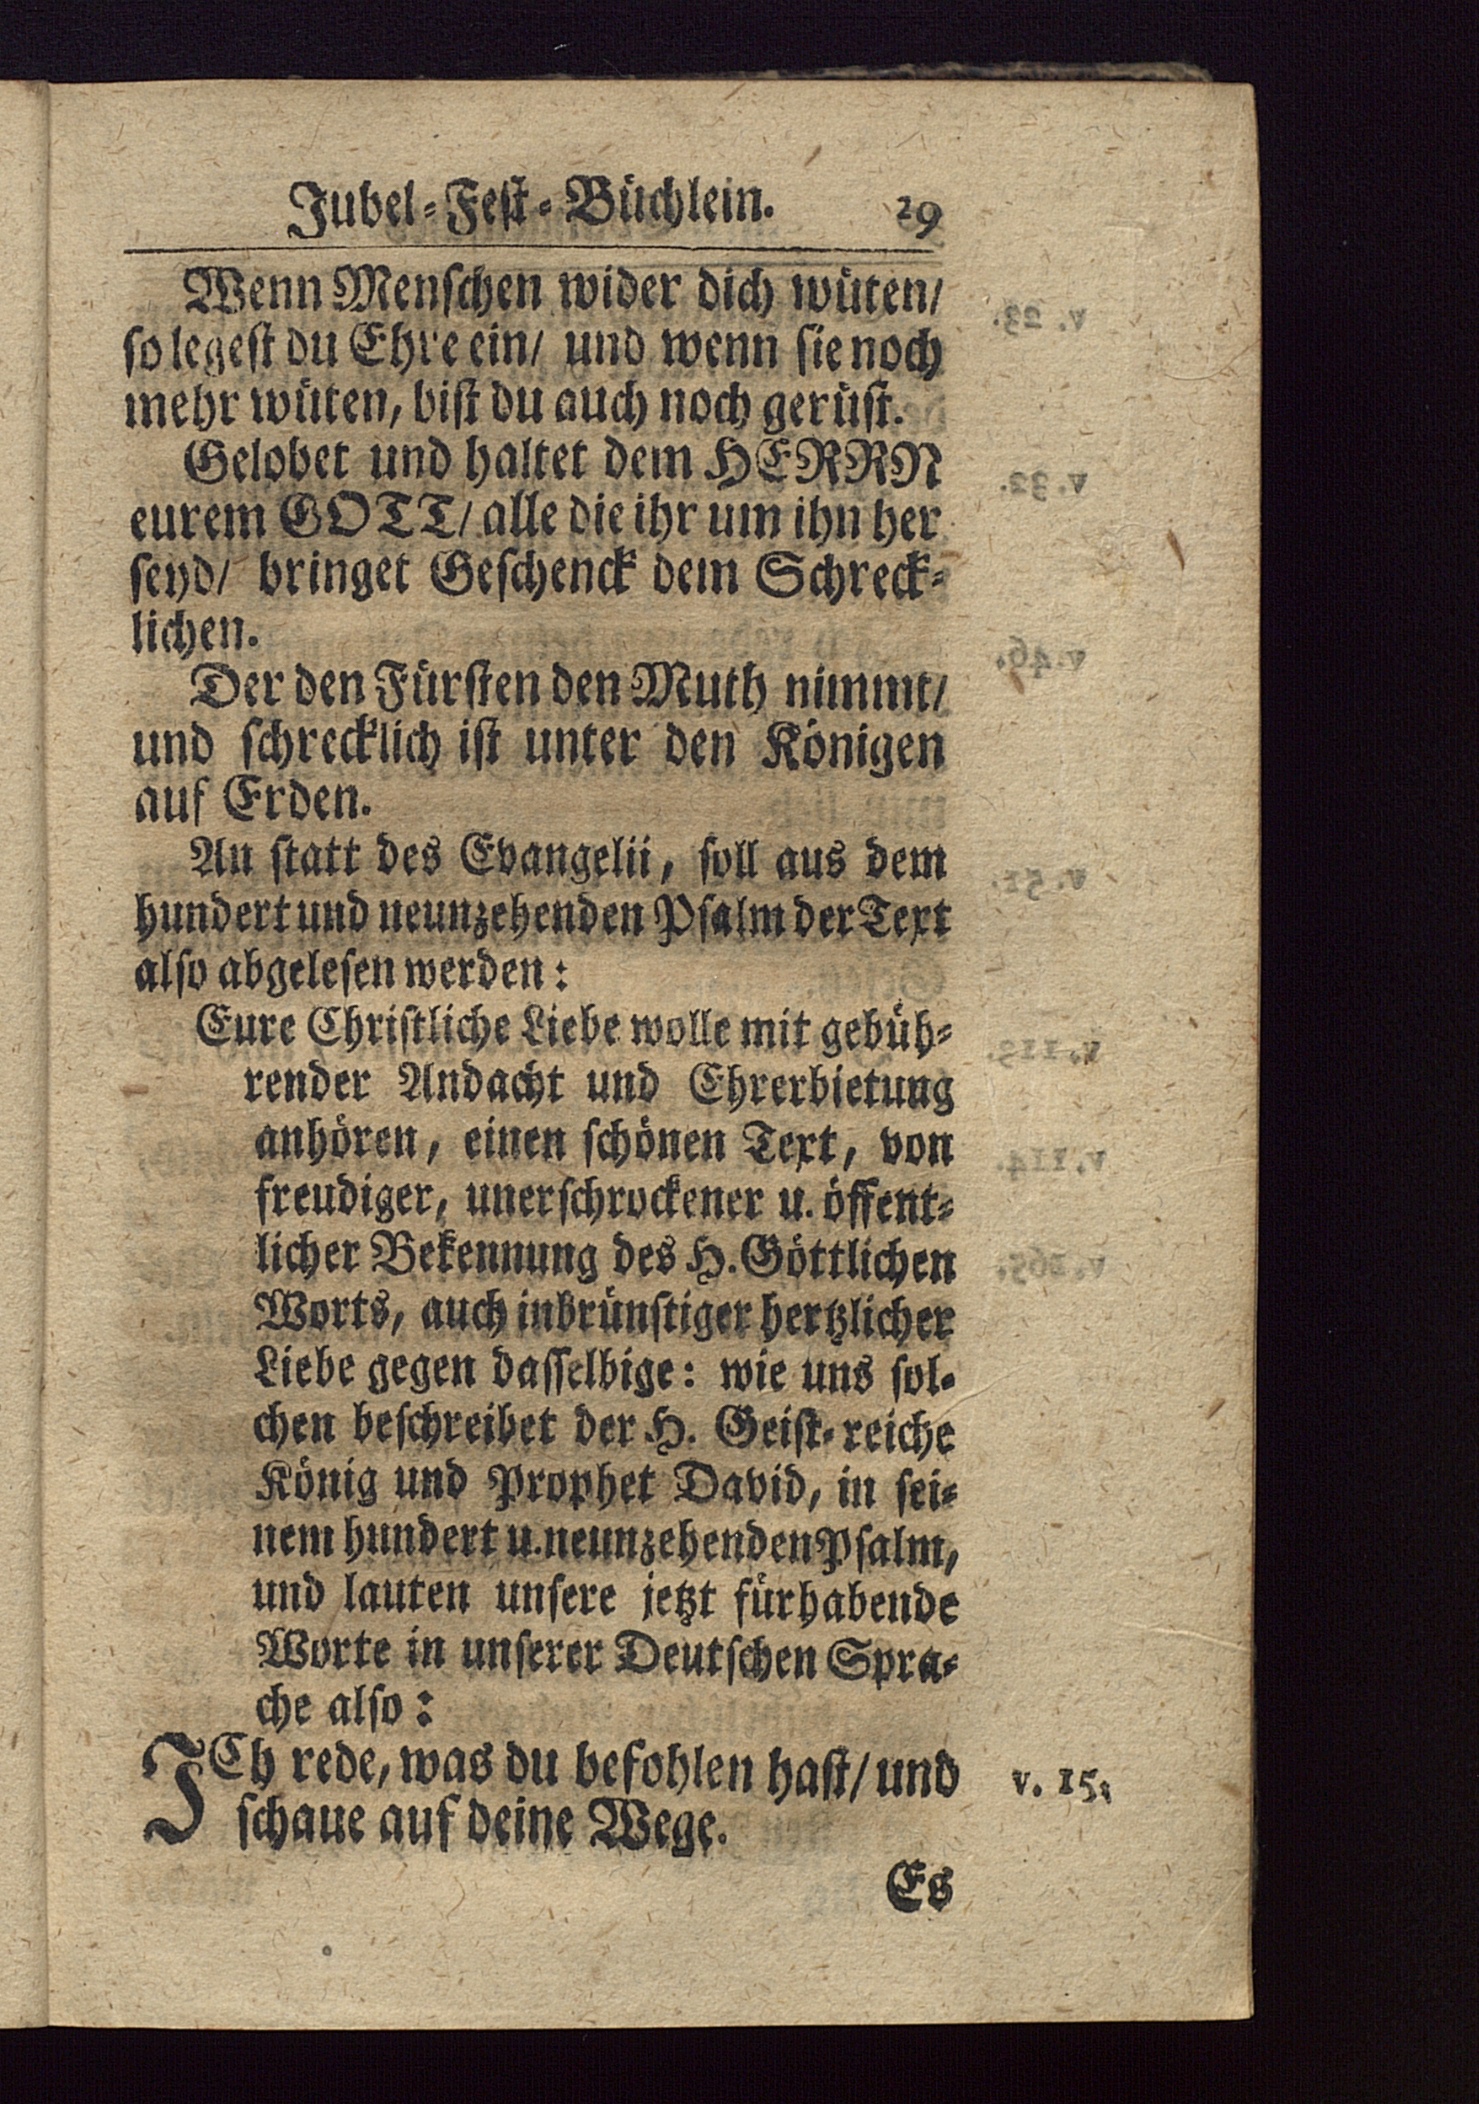 Jubel-Fest-Büchlein. 29
Wenn Menschen wider dich wüten/
so legest du Ehre ein/ und wenn sie noch
mehr wüten, bist du auch noch gerüst.
Gelobet und haltet dem HERRN
eurem GOTT/ alle die ihr um ihn her
seyd/ bringet Geschenck dem Schreck-
lichen.
Der den Fürsten den Muth nimmt/
und schrecklich ist unter den Königen
auf Erden.
An statt des Evangelii, soll aus dem
hundert und neunzehenden Psalm der Text
also abgelesen werden:
Eure Christliche Liebe wolle mit gebüh-
render Andacht und Ehrerbietung
anhören, einen schönen Text, von
freudiger, unerschrockener u. öffent-
licher Bekennung des H. Göttlichen
Worts, auch inbrünstiger hertzlicher
Liebe gegen dasselbige: wie uns sol-
chen beschreibet der H. Geist-reiche
König und Prophet David, in sei-
nem hundert u. neunzehenden Psalm,
und lauten unsere jetzt fürhabende
Worte in unserer Deutschen Spra-
che also:
JCh rede, was du befohlen hast/ und v. 15.
schaue auf deine Wege.
Es